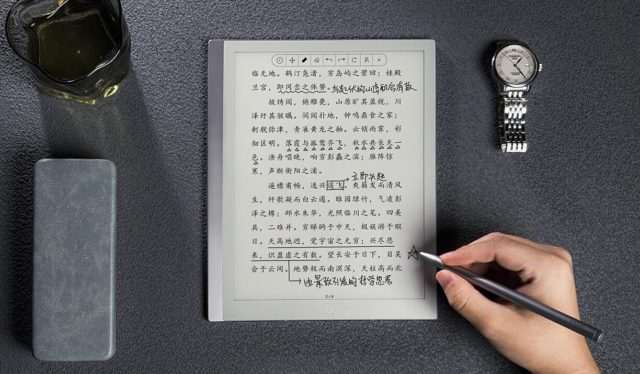 临无地。鹤汀凫渚,穷岛屿之萦回;桂殿
兰宫,即冈峦之体势。起伏的山峦
披绣闼,俯雕甍,山原旷其盈视,川
泽纡其骇瞩。闾阎扑地,钟鸣鼎食之家;
舸舰弥津,青雀黄龙之舳。云销雨霁,彩
彻区明。落霞与孤鹜齐飞,秋水共长天一
色。渔舟唱晚,响穷彭蠡之滨;雁阵惊
寒,声断衡阳之浦。
立即兴起
遥襟甫畅,逸兴遄飞。爽籁发而清风
生,纤歌凝而白云遏。睢园绿竹,气凌彭
泽之樽;邺水朱华,光照临川之笔。四美
具,二难并。穷睇眄于中天,极娱游于暇
日。天高地迥,觉宇宙之无穷;兴尽悲
来,识盈虚之有数。望长安于日下,目吴
会于云间。地势极而南溟深,天柱高而北
由景致引发的哲学思考